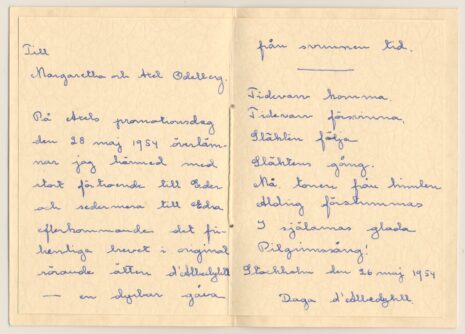 Till
Margaretha och Axel Odelberg.
På Axels promotionsdag
den 28 maj 1954 överläm-
nar jag härmed med
stort förtroende till Eder
och sedermera till Edra
efterkommande det fri-
herrliga brevet i original
rörande ätten d'Albedyhll
— en dyrbar gåva
från svunnen tid.
Tidevarv komma.
Tidevarv försvinna.
Släkten följa
Släktens gång.
Må tonen från himlen
Aldrig förstummas
I själarnas glada
Pilgrimssång!
Stockholm den 26 maj 1954
Daga d'Albedyhll.